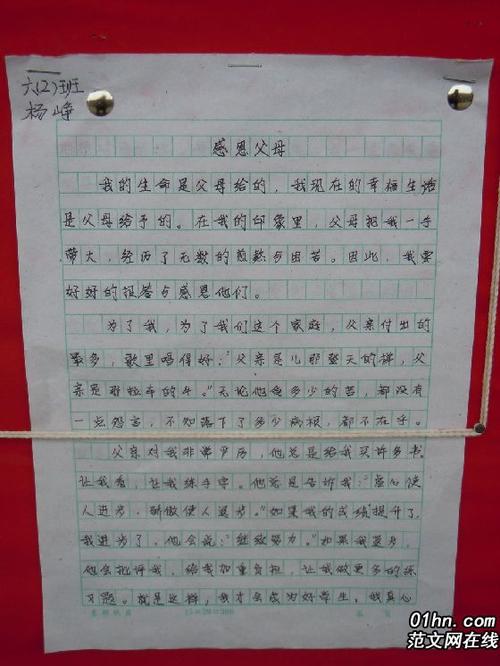 六(2)班
杨峥
感恩父母
我的生命是父母给的，我现在的幸福生活
是父母给予的。在我的印象里，父母把我一手
带大，经历了无数的煎熬与困苦。因此，我要
好好的报答与感恩他们。
为了我，为了我们这个家庭，父亲付出的
最多，歌里唱得好：“父亲是儿那登天的梯，父
亲是那拉车的牛。”无论他受多少的苦，都没有
一点怨言，不知落下了多少病根，都不在乎。
父亲对我非常严厉，他总是给我买许多书
让我看，让我练手字。他总是告诉我：“虚心使
人进步，骄傲使人退步。”如果我的成绩提升了，
我进步了，他会说：“继续努力。”如果我退步，
他会批评我，给我加重负担，让我做更多的练
习题。就是这样，我才会成为好学生，我真心
01hn.com
范文网在线